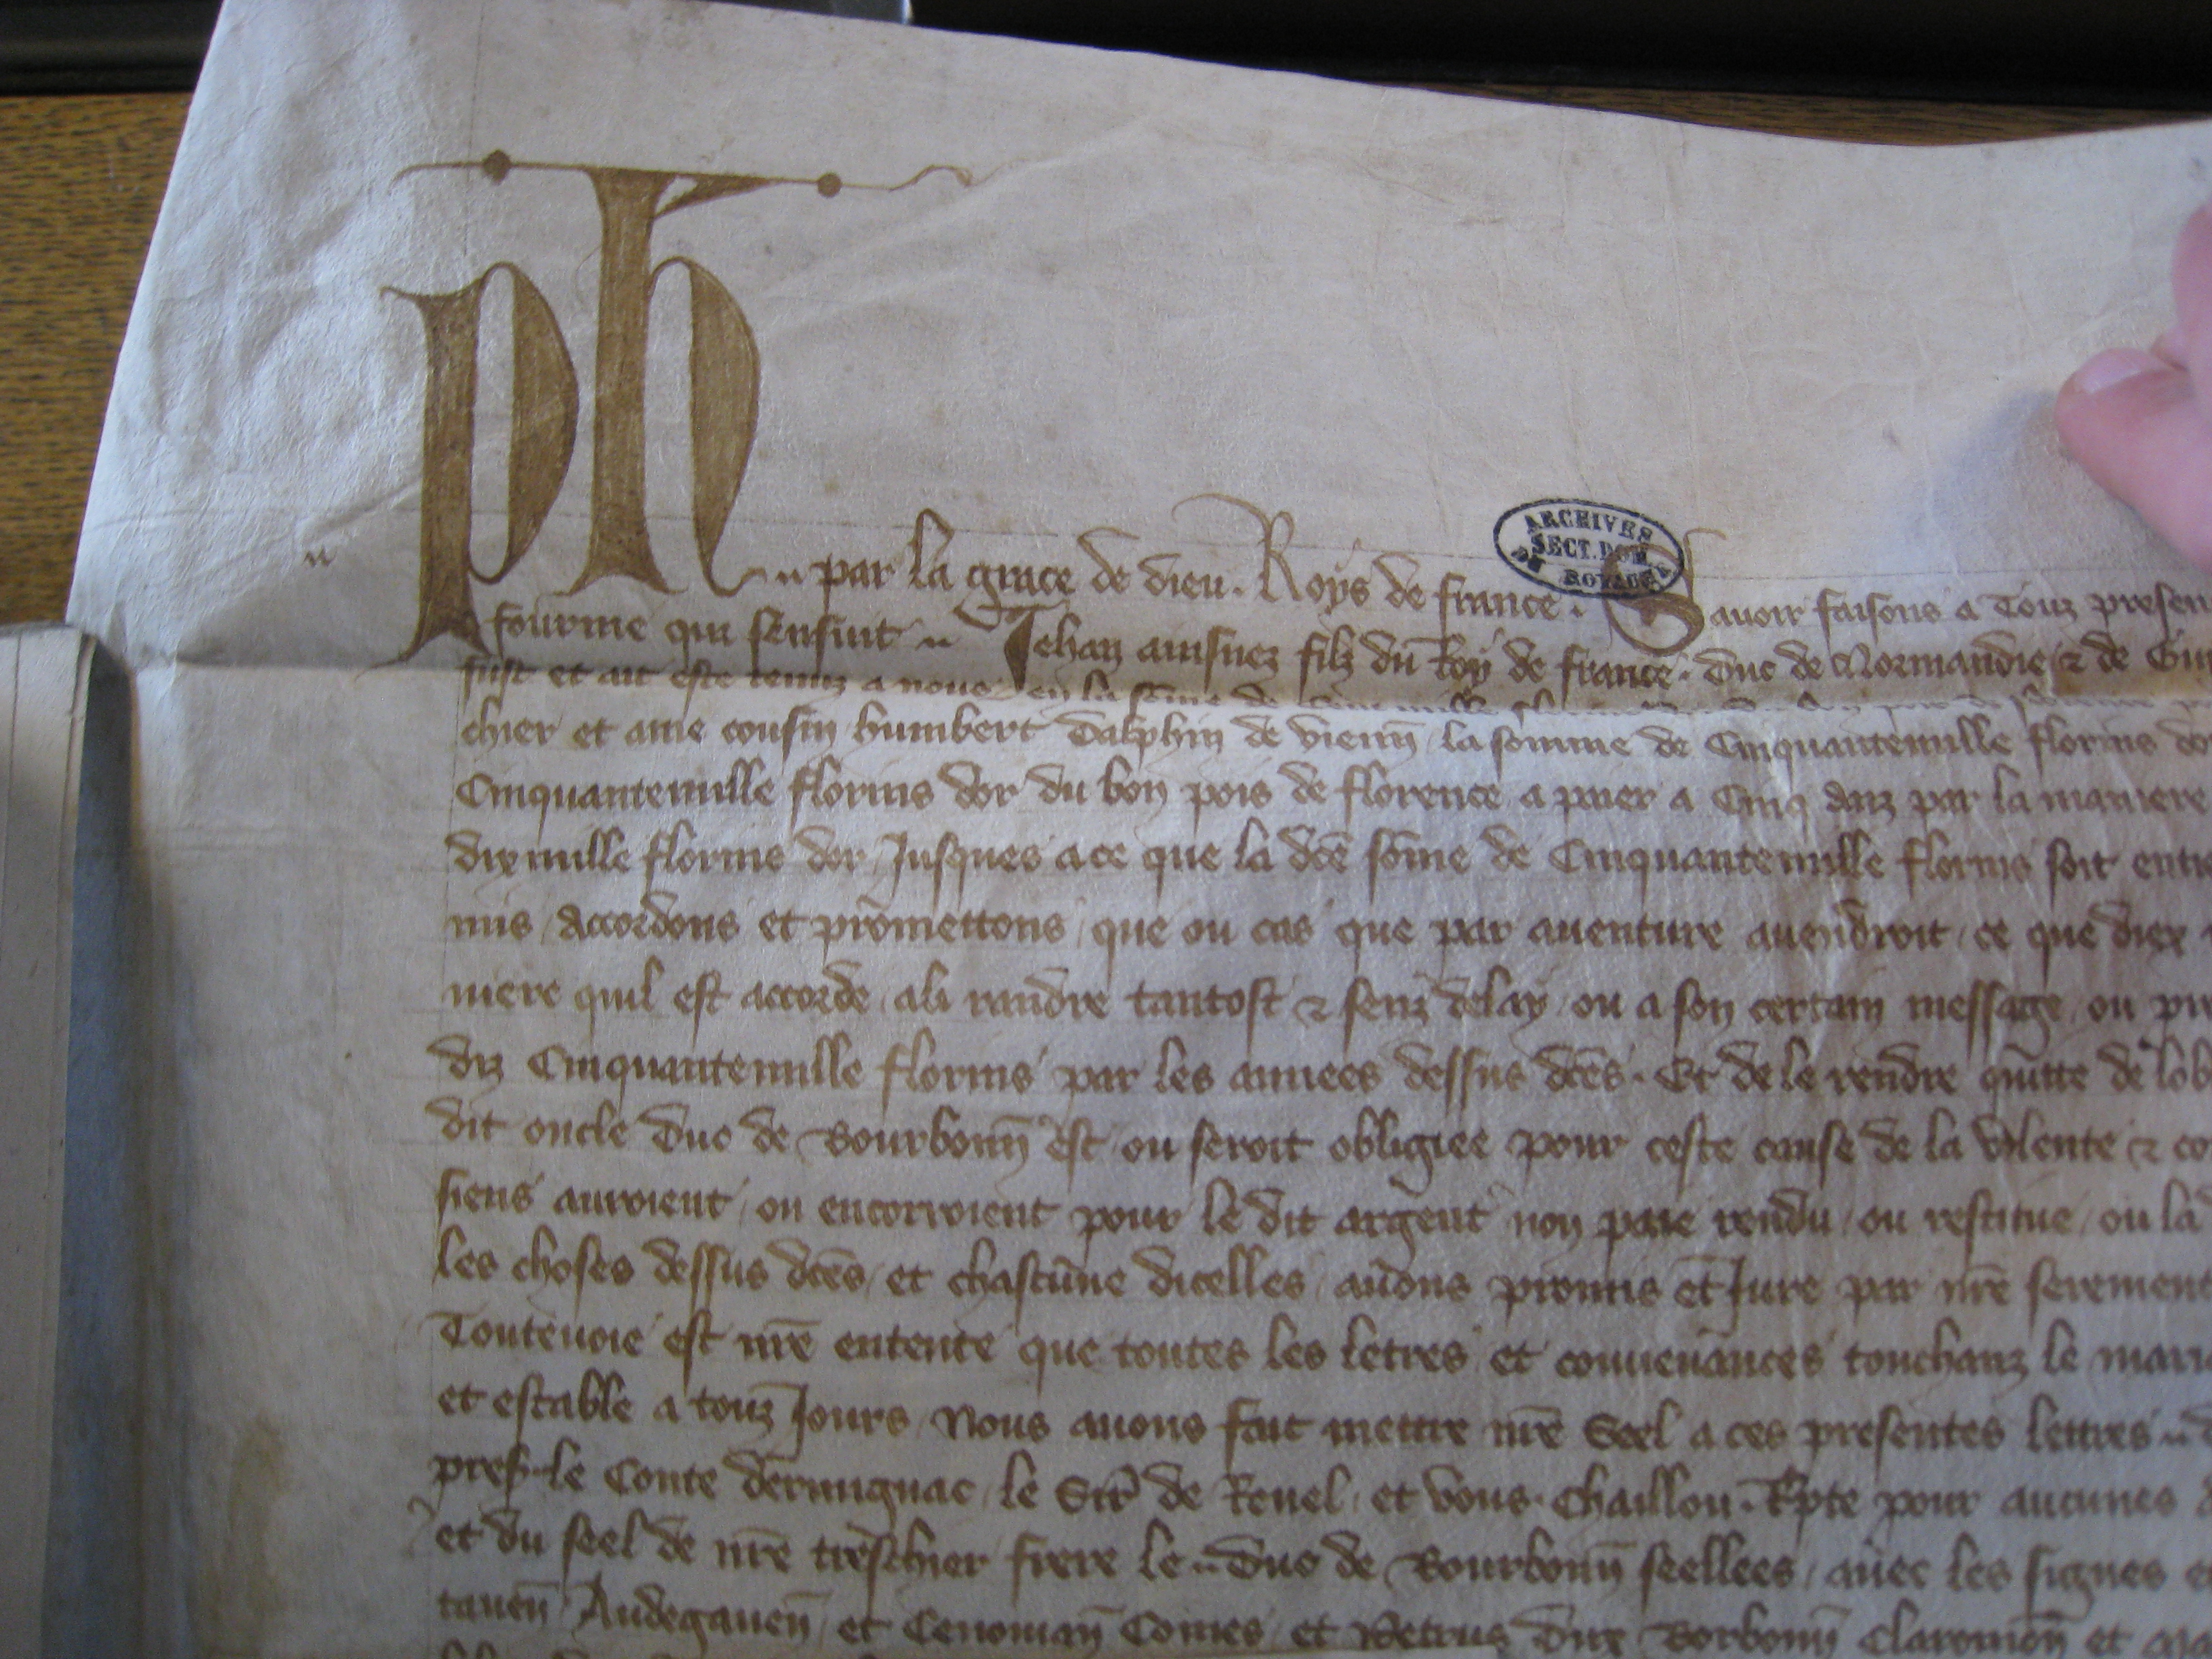 Ph par la grace de dieu. Roys de france. Savoir faisons a Touz presen
ARCHIVES
SECT. DOM.
DU ROYAUME
fourme qui sensuit Jehan ainsnez filz du Roy de france. Duc de Normandie & de Gui
fust et ait este tenuz a nous en la sõme de
chier et ame cousin humbert Dalphin de vienñ la somme de Cinquantemille florins
Cinquantemille florins dor du bon pois de florence a paier a Cinq anz par la maniere
dixmille florins dor Jusques a ce que la dcẽ sõme de Cinquantemille florins soit enti
mis accordons et promettons que ou cas que par auenture auendroit ce que diex
niere quil est accorde ali randre tantost & senz delay ou a son certain message ou pr
diz Cinquantemille florins par les annees dessus dcẽs. Et de le rendre quitte de lob
dit oncle Duc de Bourbonñ est ou seroit obligiee pour ceste cause de la volente & co
siens auroient ou encorroient pour le dit argent non paie rendu ou restitue ou la
les choses dessus dcẽs et chascune dicelles auons promis et Jure par nr̃e serement
Toutenoie est nr̃e entente que toutes les letres et conuenances touchanz le mari
et estable a touz Jours Nous auons fait mettre nr̃e Seel a ces presentes lettres
pres. le Conte dermignac le Sir̃ de Reuel et vous Chaillou. Rp̃te pour aucunes
et du seel de nr̃e treschier frere le Duc de Bourbonñ seellees auec les signes
tauen̄ Andegauen̄ et Cenoman̄ Comes et Petrus Dux Borbonñ Claromon̄ et